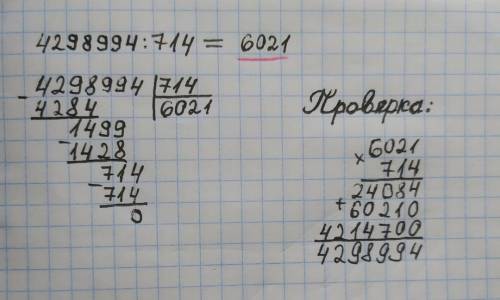 4298994:714 = 6021
4298994 714
- 4284 6021
1499
- 1428
714
- 714
0
Проверка:
× 6021
714
24084
+ 60210
4214700
4298994